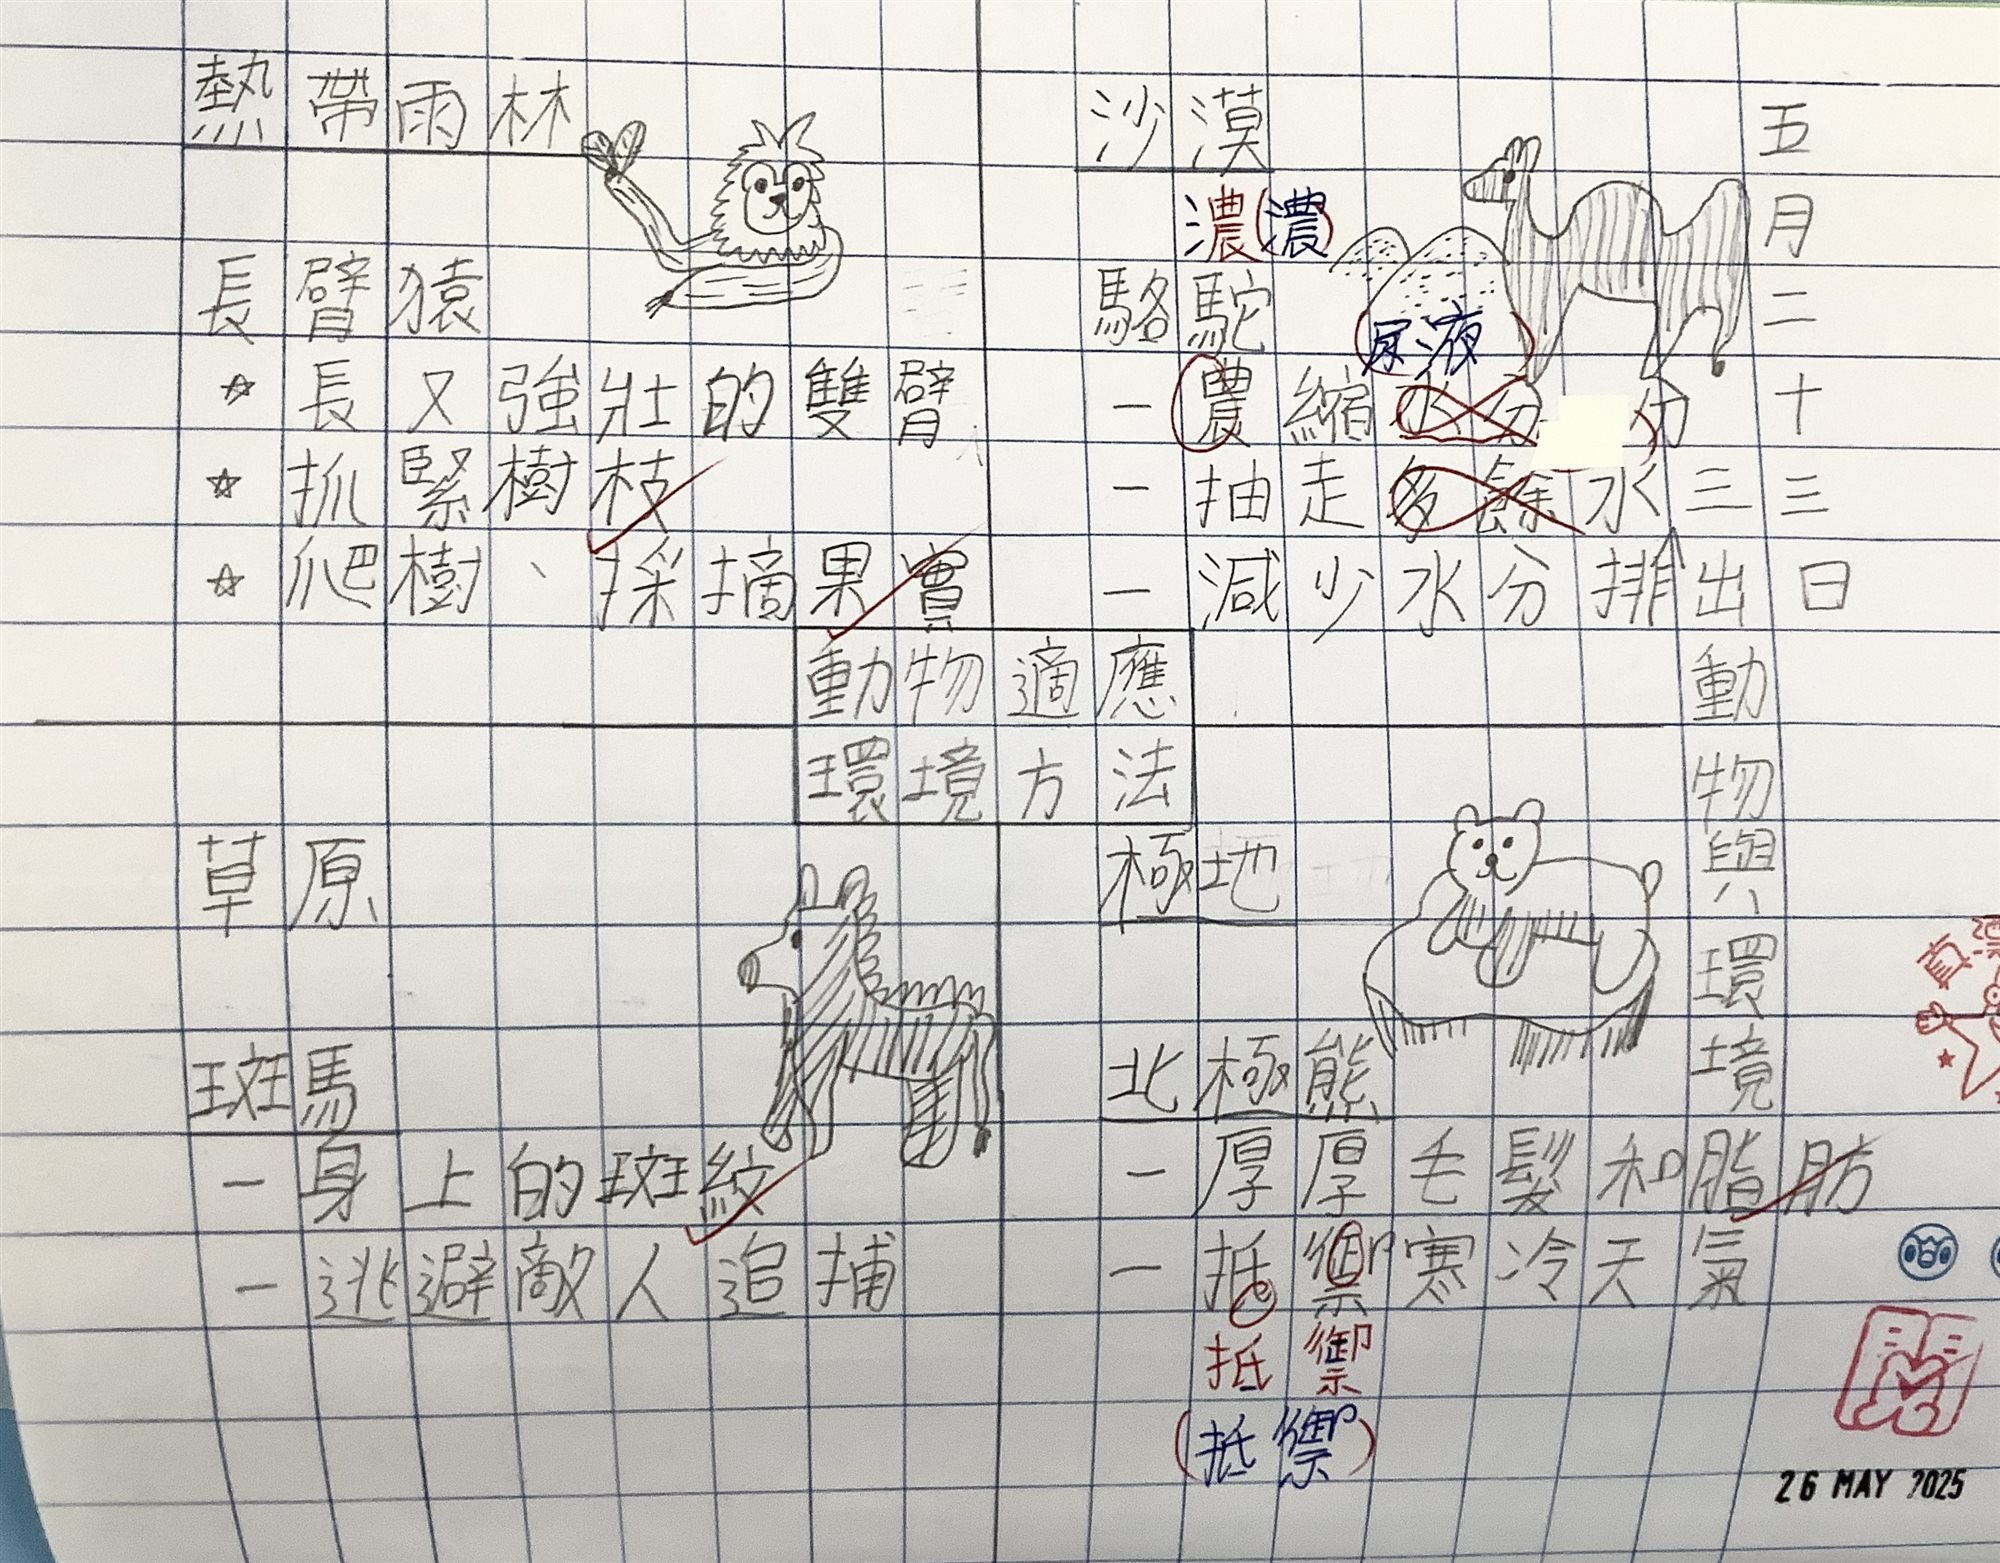 五月二十三日
動物與環境
熱帶雨林
長臂猿
☆長又強壯的雙臂
☆抓緊樹枝
☆爬樹、採摘果實
沙漠
濃(濃)
駱駝
尿液
一農縮水分 分
一抽走多餘水三
一減少水分排出
動物適應
環境方法
草原
斑馬
一身上的斑紋
一逃避敵人追捕
極地
北極熊
一厚厚毛髮和脂肪
一抵禦寒冷天氣
抵禦
(抵禦)
真
閱
26 MAY 2025